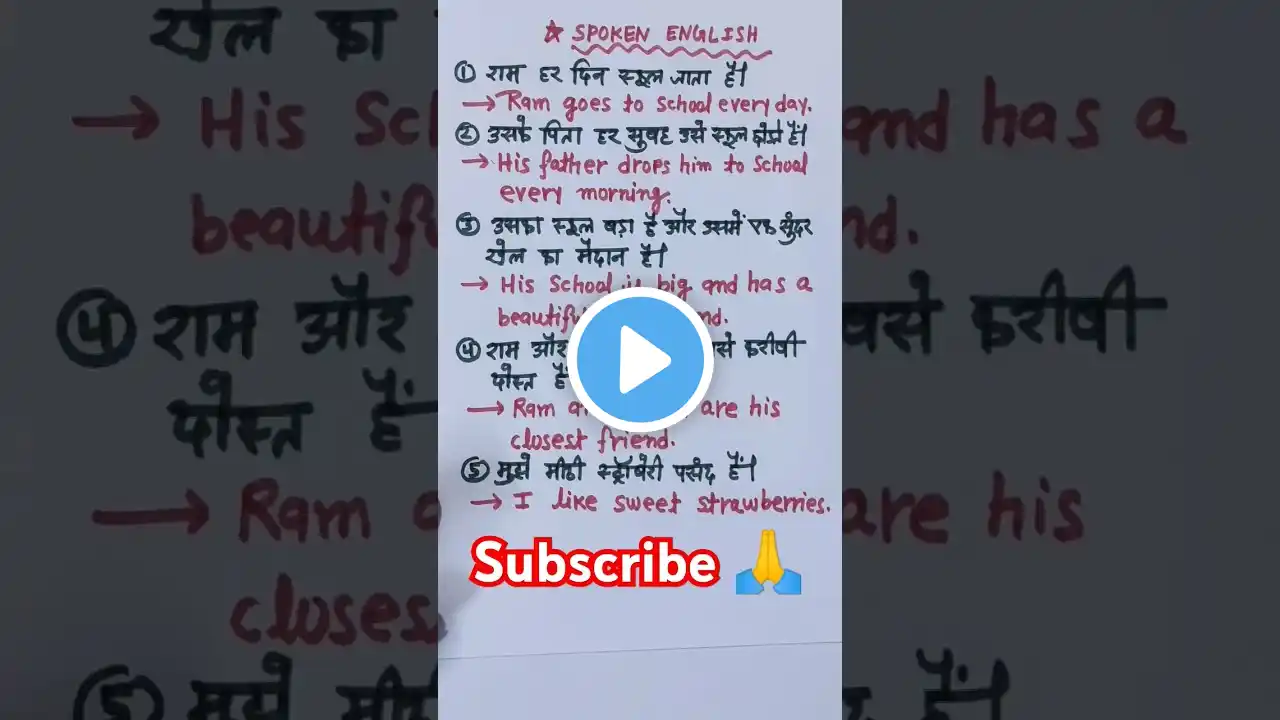 ☆ SPOKEN ENGLISH
① राम हर दिन स्कूल जाता है।
→ Ram goes to school every day.
② उसके पिता हर सुबह उसे स्कूल छोड़ते हैं।
→ His father drops him to school
every morning.
③ उसका स्कूल बड़ा है और उसमें एक सुंदर
खेल का मैदान है।
→ His School is big and has a
④ राम और करीबी
दोस्त हैं
→ Ram are his
closest friend.
⑤ मुझे मीठी स्ट्रॉबेरी पसंद हैं।
→ I like sweet strawberries.
Subscribe 🙏